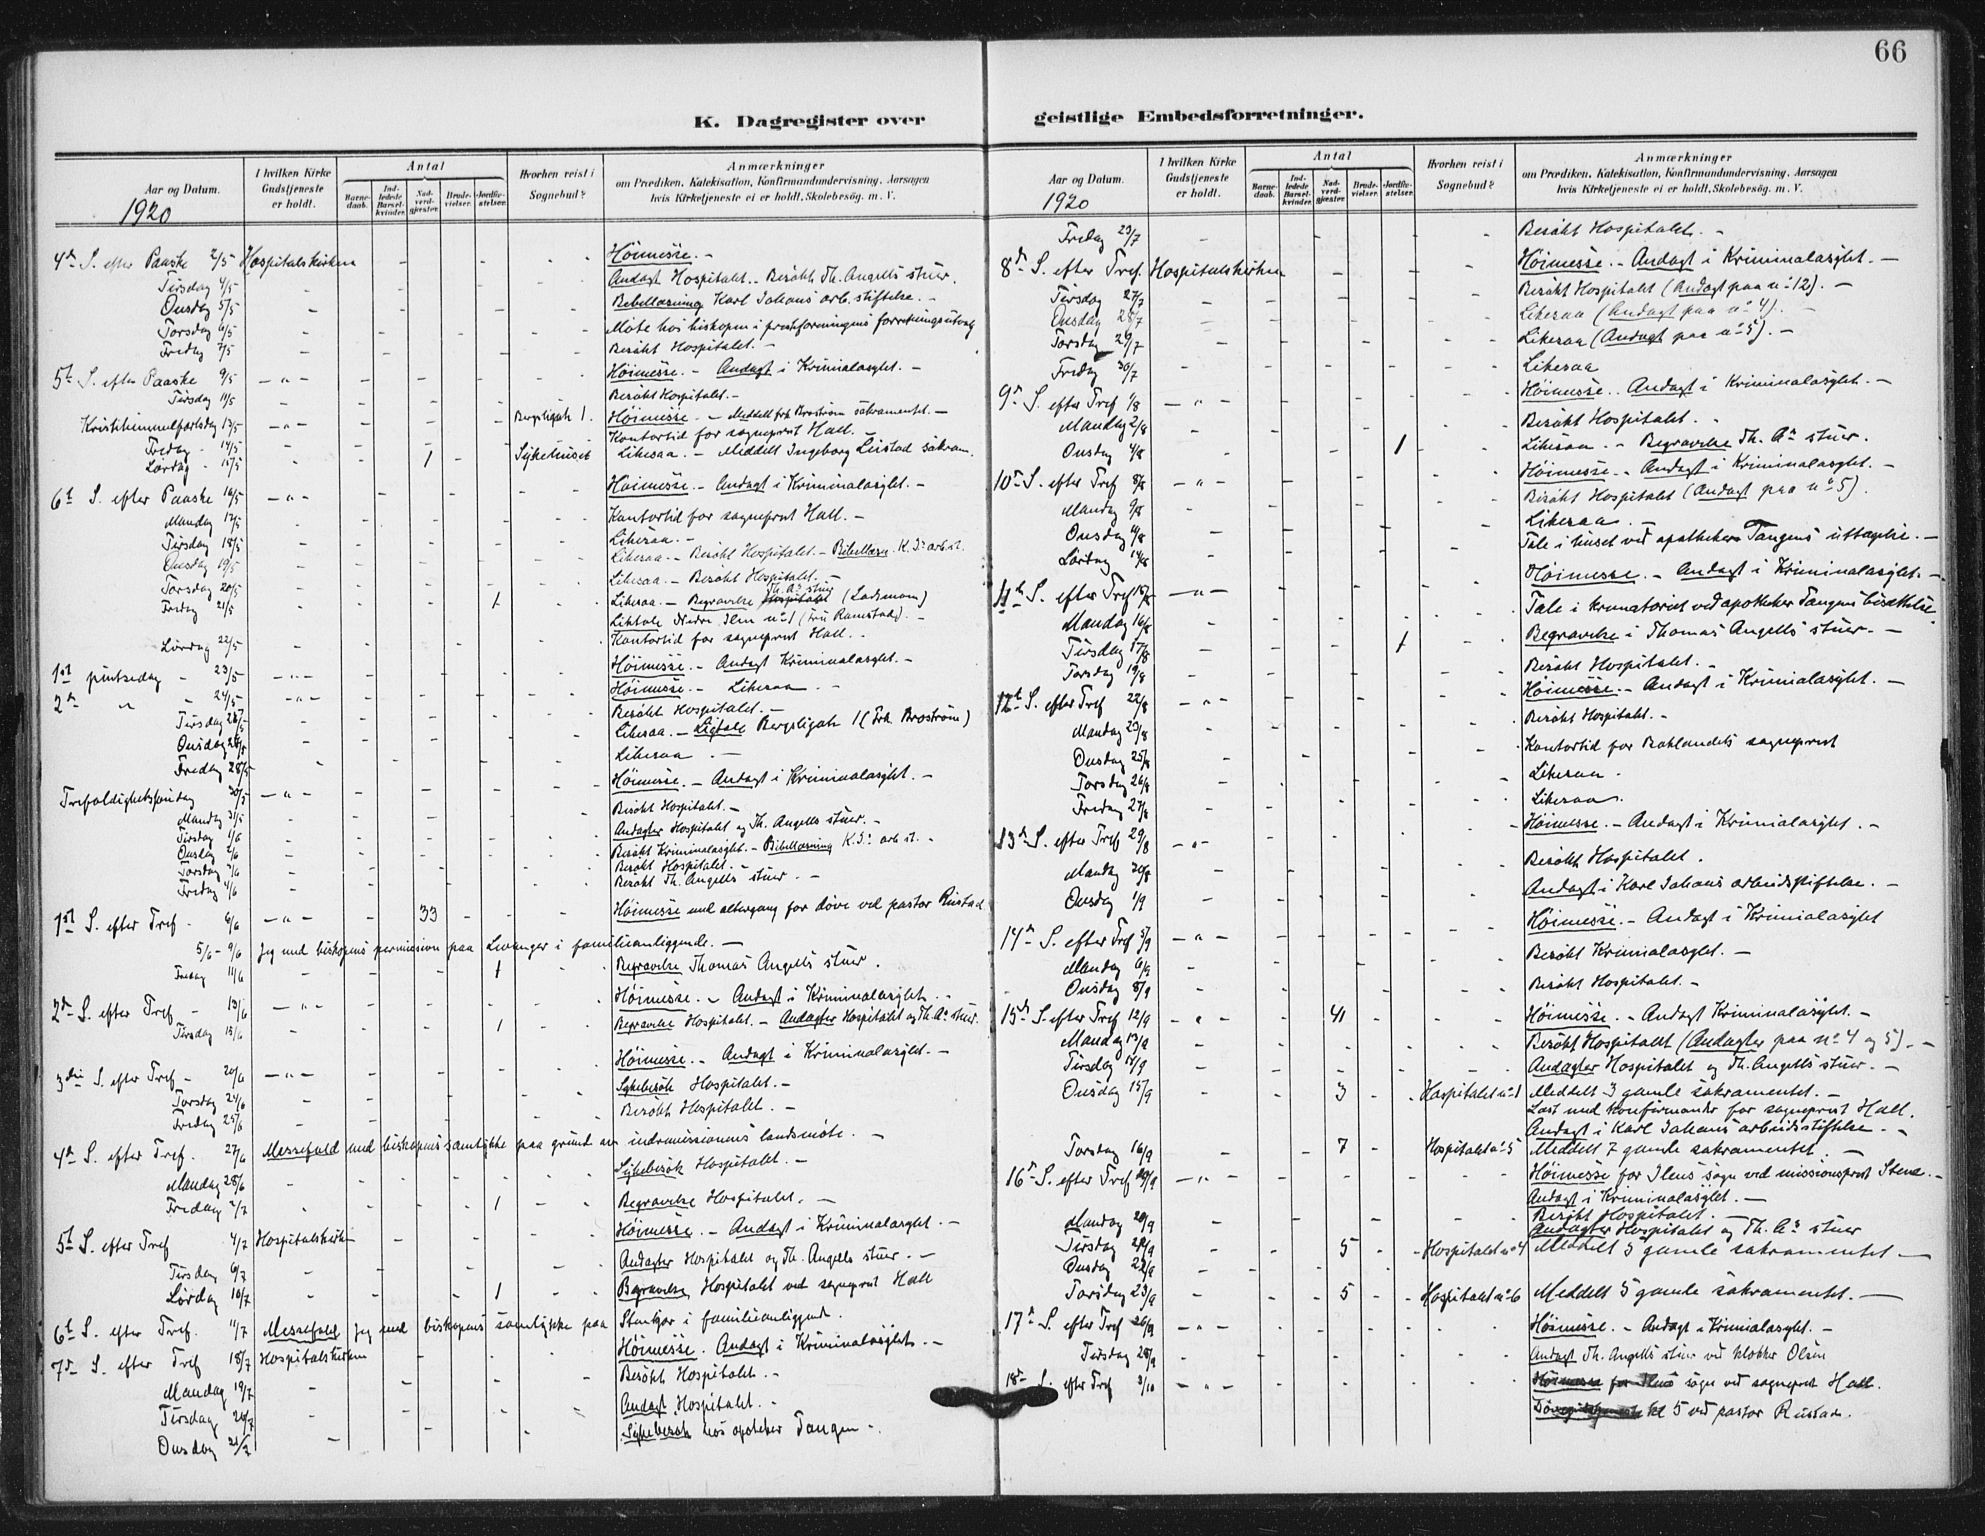 66
K. Dagregister over geistlige Embedsforretninger.
Aar og Datum.
1920
I hvilken Kirke Gudstjeneste er holdt.
Antal
Barne-daab.
Ind-ledede Barsel-kvinder.
Nad-verd-gjester.
Brude-vielser.
Jordfæ-stelser.
Hvorhen reist i Sognebud?
Anmærkninger
om Prædiken, Katekisation, Konfirmandundervisning, Aarsagen
hvis Kirketjeneste ei er holdt, Skolebesøg. m. V.
4de S. efter Paaske 2/5 Hospitalskirken - Höimesse. -
Tirsdag 4/5 - Andagt Hospitalet. Besökt Th. Angells stuer.
Onsdag 5/5 - Bibellæsning Karl Johans arb. stiftelse. -
Torsdag 6/5 - Möte hos biskopen i presteforeningens forretningsutvalg
Fredag 7/5 - Besökt Hospitalet. -
5te S. efter Paaske 9/5 - " - Höimesse. - Andagt i Kriminalasylet. -
Tirsdag 11/5 - Besökt Hospitalet. -
Kristihimmelfartsdag 13/5 - " - Bergsligate 1. Höimesse. - Meddelt frk Broström sakramentet. -
Fredag - 14/5 - Kontortid for sogneprest Hall. -
Lørdag - 15/5 - 1 - Sykehuset Likesaa. - Meddelt Ingeborg Leistad sakram.
6te S. efter Paaske 16/5 - " - Höimesse. - Andagt i Kriminalasylet. -
Mandag 17/5 - Kontortid for sogneprest Hall. -
Tirsdag 18/5 - Likesaa. -
Onsdag 19/5 - Likesaa. - Besökt Hospitalet. - Bibellæsn. K. J.s arb. st.
Torsdag 20/5 - Likesaa. - Besökt Hospitalet. -
Fredag 21/5 - 1 - Likesaa. - Begravelse Th. A.s stuer (Lademoen)
Liktale Nedre Ilen no 1 (Fru Ramstad). -
Lørdag 22/5 - Kontortid for sogneprest Hall. -
1ste pintsedag - 23/5 - " - Höimesse. - Andagt Kriminalasylet. -
2den " - 24/5 - " - Höimesse. - Likesaa. -
Tirsdag 25/5 - Besökt Hospitalet. -
Onsdag 26/5 - Likesaa. - Ligtale Bergsligate 1 (Frk Broström)
Fredag 28/5 - Likesaa -
Trefoldighetssøndag 30/5 - " - Höimesse. - Andagt i Kriminalasylet. -
Mandag 31/5 - Besökt Hospitalet. -
Tirsdag 1/6 - Andagter Hospitalet og Th. Angells stuer. -
Onsdag 2/6 - Besökt Kriminalasylet. - Bibellæsning K. J.s arb. st. -
Torsdag 3/6 - Besökt Hospitalet. -
Fredag 4/6 - Besökt Th. Angells stuer. -
1ste S. efter Tref - 6/6 - " - 33 - Höimesse med altergang for døve ved pastor Rustad
5/6 - 9/6 Jeg med biskopens permission paa Levanger i familieanliggende. -
Fredag 11/6 - 1 - Begravelse Thomas Angells stuer.
2den S. efter Tref - 13/6 - " - Höimesse. - Andagt i Kriminalasylet. -
Tirsdag 15/6 - 1 - Begravelse Hospitalet. - Andagter Hospitalet og Th. A.s stuer.
3die S. efter Tref - 20/6 - " - Höimesse. - Andagt i Kriminalasylet. -
Torsdag 24/6 - Sykebesök Hospitalet. -
Fredag 25/6 - Besökt Hospitalet. -
4de S. efter Tref. 27/6 Messefald med biskopens samtykke paa grund av indremissionens landsmöte. -
Mandag 28/6 - Sykebesök Hospitalet. -
Fredag 2/7 - 1 - Begravelse Hospitalet. -
5te S. efter Tref 4/7 Hospitalskirken - Höimesse. - Andagt i Kriminalasylet. -
Tirsdag 6/7 - Andagter Hospitalet og Th. Angells stuer. -
Lørdag 10/7 - 1 - Begravelse Hospitalet ved sogneprest Hall
6te S. efter Tref. 11/7 Messefald jeg med biskopens samtykke paa Stenkjær i familieanliggende.
7de S. efter Tref 18/7 Hospitalskirken - Höimesse. Andagt i Kriminalasylet. -
Mandag 19/7 - Besökt Hospitalet. -
Tirsdag 20/7 - Andagt Hospitalet. -
Onsdag 21/7 - Sykebesök hos apoteker Tangen -
Aar og Datum.
1920
I hvilken Kirke Gudstjeneste er holdt.
Antal
Barne-daab.
Ind-ledede Barsel-kvinder.
Nad-verd-gjester.
Brude-vielser.
Jordfæ-stelser.
Hvorhen reist i Sognebud?
Anmærkninger
om Prædiken, Katekisation, Konfirmandundervisning, Aarsagen
hvis Kirketjeneste ei er holdt, Skolebesøg. m. V.
Fredag 23/7 - Besökt Hospitalet. -
8de S. efter Tref. Hospitalskirken - Höimesse. - Andagt i Kriminalasylet. -
Tirsdag 27/7 - Besökt Hospitalet (Andagt paa no 12). -
Onsdag 28/7 - Likesaa (Andagt paa no 4). -
Torsdag 29/7 - Likesaa (Andagt paa no 5). -
Fredag 30/7 - Likesaa
9de S. efter Tref 1/8 - " - Höimesse. Andagt i Kriminalasylet. -
Mandag 2/8 - Besökt Hospitalet. -
Onsdag 4/8 - 1 - Likesaa. - Begravelse Th. A.s stuer.
10de S. efter Tref 8/8 - " - Höimesse. - Andagt i Kriminalasylet. -
Mandag 9/8 - Besökt Hospitalet (Andagt paa no 5).
Onsdag 11/8 - Likesaa. -
Lørdag 14/8 - Tale i huset ved apotheker Tangens uttagelse. -
11te S. efter Tref 15/8 - " - Höimesse. - Andagt i Kriminalasylet. -
Mandag 16/8 - Tale i krematoriet ved apotheker Tangens bisættelse
Tirsdag 17/8 - 1 - Begravelse i Thomas Angells stuer. -
Torsdag 19/8 - Besökt Hospitalet. -
12te S. efter Tref 22/8 - " - Höimesse. - Andagt i Kriminalasylet. -
Mandag 23/8 - Besökt Hospitalet. -
Onsdag 25/8 - Kontortid for Baklandets sogneprest
Torsdag 26/8 - Likesaa.
Fredag 27/8 - Likesaa.
13de S. efter Tref 29/8 - " - Höimesse. - Andagt i Kriminalasylet. -
Mandag 30/8 - Besökt Hospitalet.
Onsdag 1/9 - Andagt i Karl Johans arbeidsstiftelse. -
14de S. efter Tref 5/9 - " - Höimesse. - Andagt i Kriminalasylet
Mandag 6/9 - Besökt Kriminalasylet. -
Onsdag 8/9 - Besökt Hospitalet. -
15de S. efter Tref 12/9 - " - 41 - Höimesse. - Andagt Kriminalasylet. -
Mandag 13/9 - Besökt Hospitalet (Andagter paa no 4 og 5). -
Tirsdag 14/9 - Andagter Hospitalet og Th. Angells stuer. -
Onsdag 15/9 - 3 - Hospitalet no 1 Meddelt 3 gamle sakramentet. -
Læst med konfirmander for sogneprest Hall.
Andagt i Karl Johans arbeidsstiftelse. -
Torsdag 16/9 - 7 - Hospitalet no 5 Meddelt 7 gamle sakramentet. -
16de S. efter Tref 19/9 - " - Höimesse for Ilens sogn ved missionsprest Stene. -
Andagt i Kriminalasylet. -
Mandag 20/9 - Besökt Hospitalet. -
Tirsdag 21/9 - Andagter Hospitalet og Th. A.s stuer
Onsdag 22/9 - 5 - Hospitalet no 4 Meddelt 5 gamle sakramentet -
Torsdag 23/9 - 5 - Hospitalet no 6 Meddelt 5 gamle sakramentet. -
17de S. efter Tref 26/9 - " - Höimesse. - Andagt i Kriminalasylet. -
Tirsdag 28/9 - Andagt Th. Angells stuer ved klokker Olsen
18de S. efter Tref 3/10 - " - Höimesse for Ilens sogn ved sogneprest Hall.
kl 5 ved pastor Rustad.